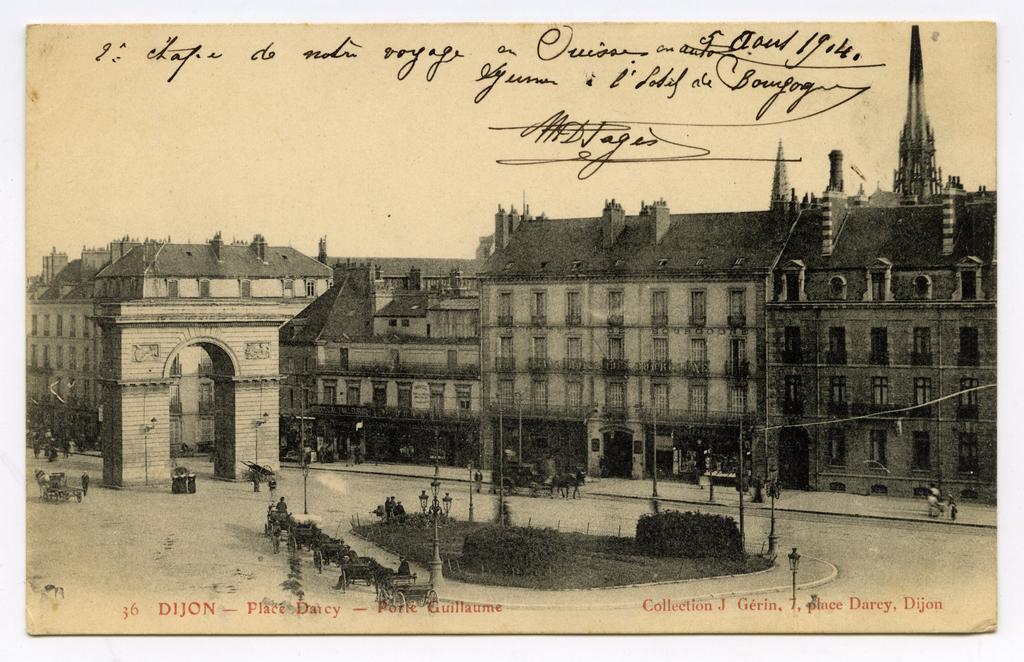 2e étape de notre voyage en Suisse en auto 5 Aout 1904.
à l'hotel de Bourgogne
Pagès
36 DIJON — Place Darcy — Porte Guillaume
Collection J Gérin, 7, place Darcy, Dijon